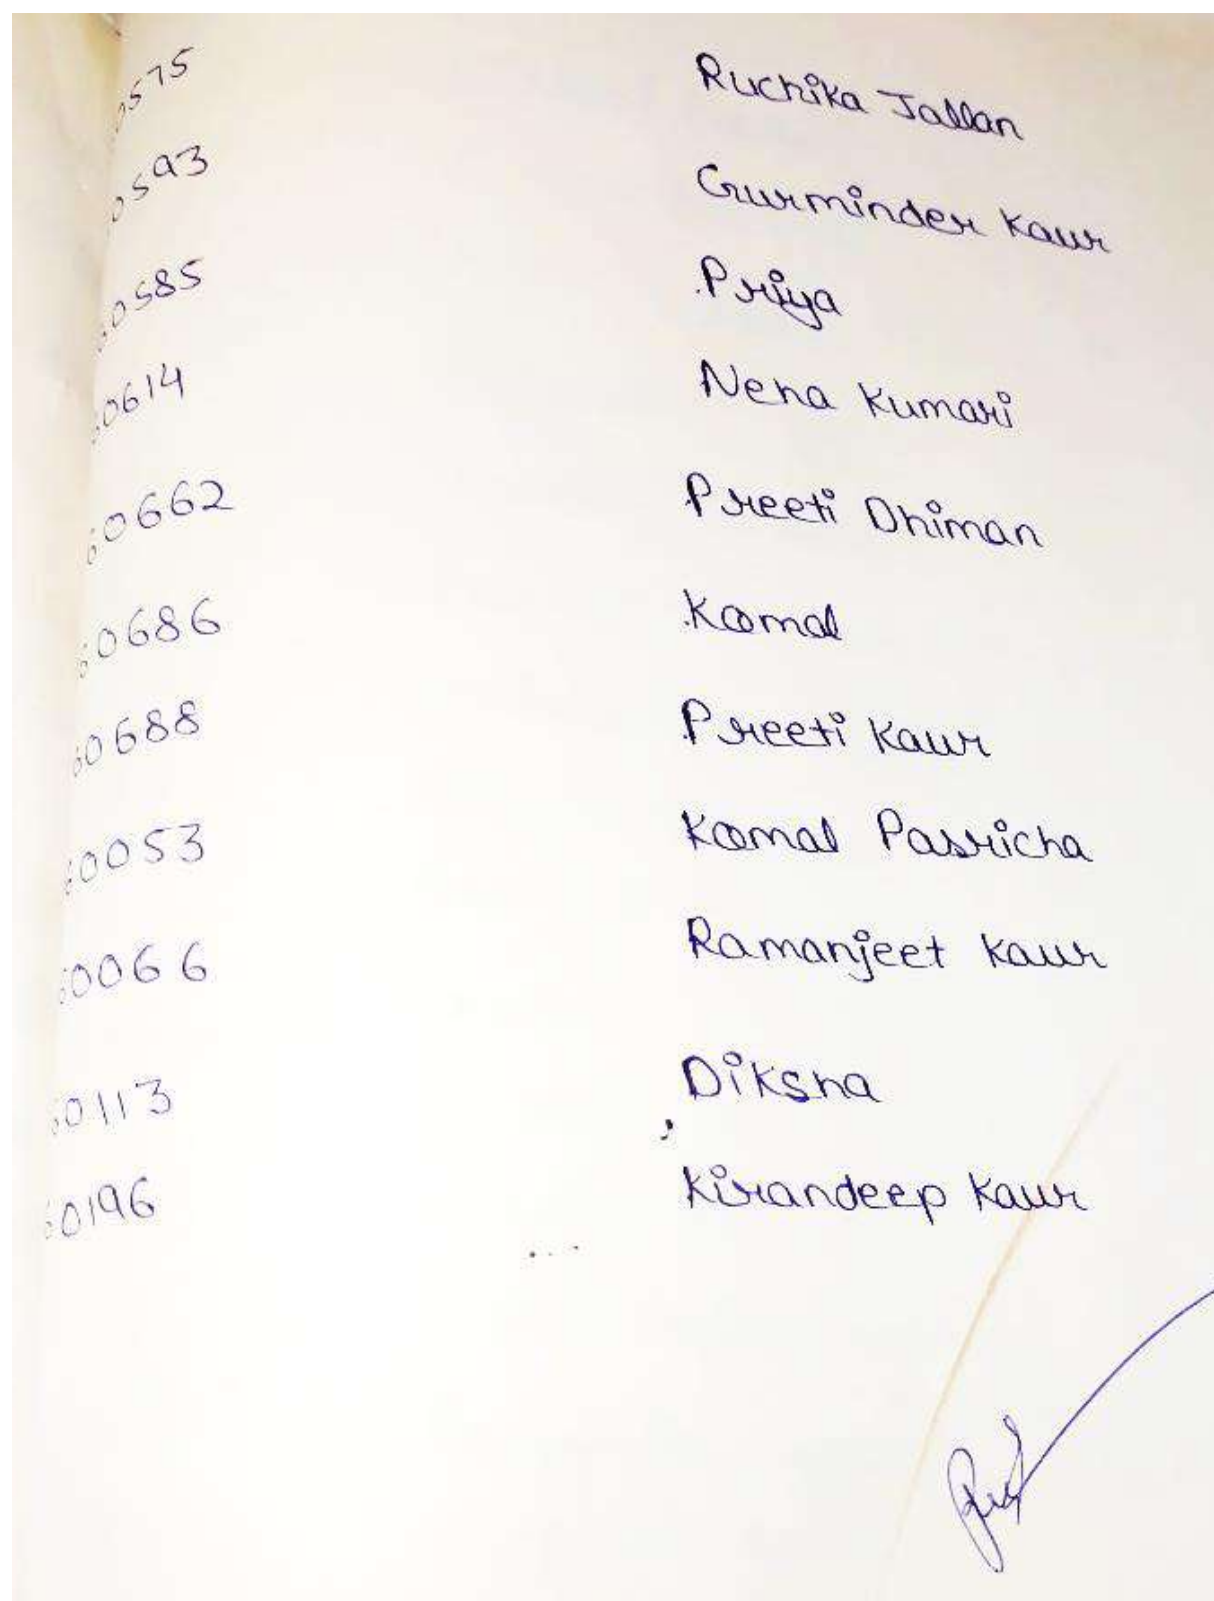 0575 Ruchika Jallan
0593 Gurminder Kaur
60585 Priya
60614 Neha Kumari
60662 Preeti Dhiman
60686 Komal
60688 Preeti Kaur
60053 Komal Pasricha
60066 Ramanjeet Kaur
60113 Diksha
60196 Kirandeep Kaur